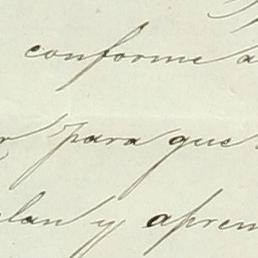 conforme a
para que
lan y aprem